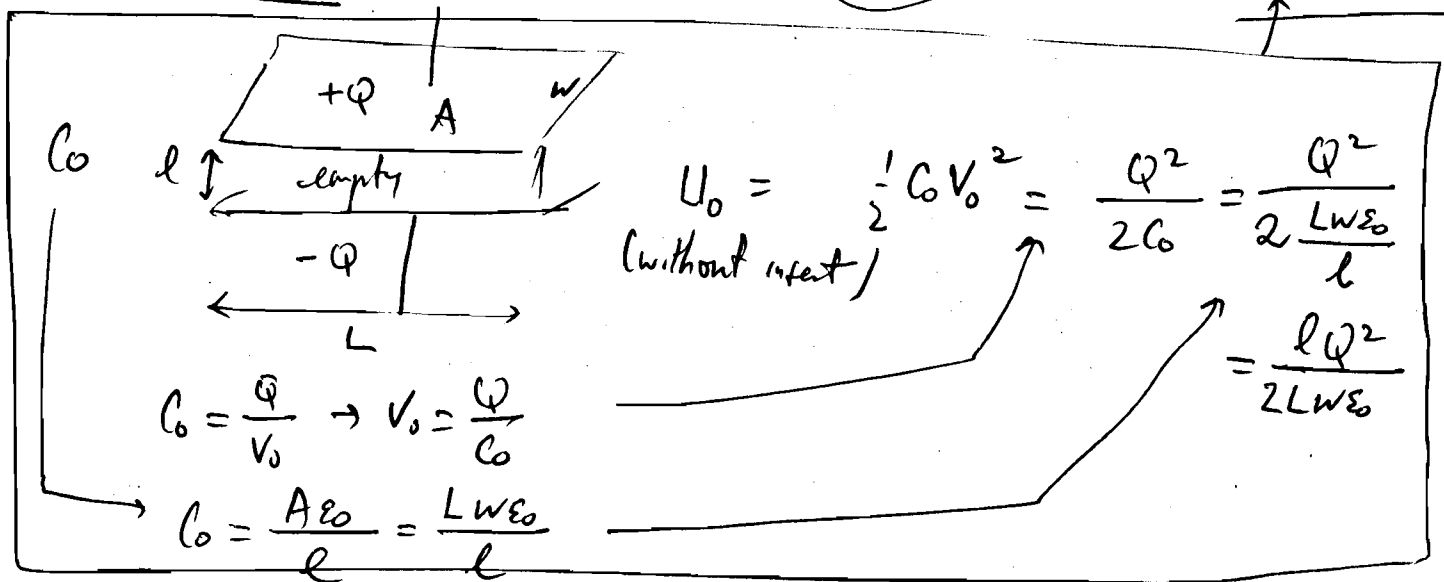 +Q A w
C₀ l empty
U₀ = ½ C₀ V₀² = Q²/2C₀ = Q²/(2 Lwε₀/l)
-Q (without insert)
L = lQ²/2Lwε₀
C₀ = Q/V₀ → V₀ = Q/C₀
C₀ = Aε₀/l = Lwε₀/l